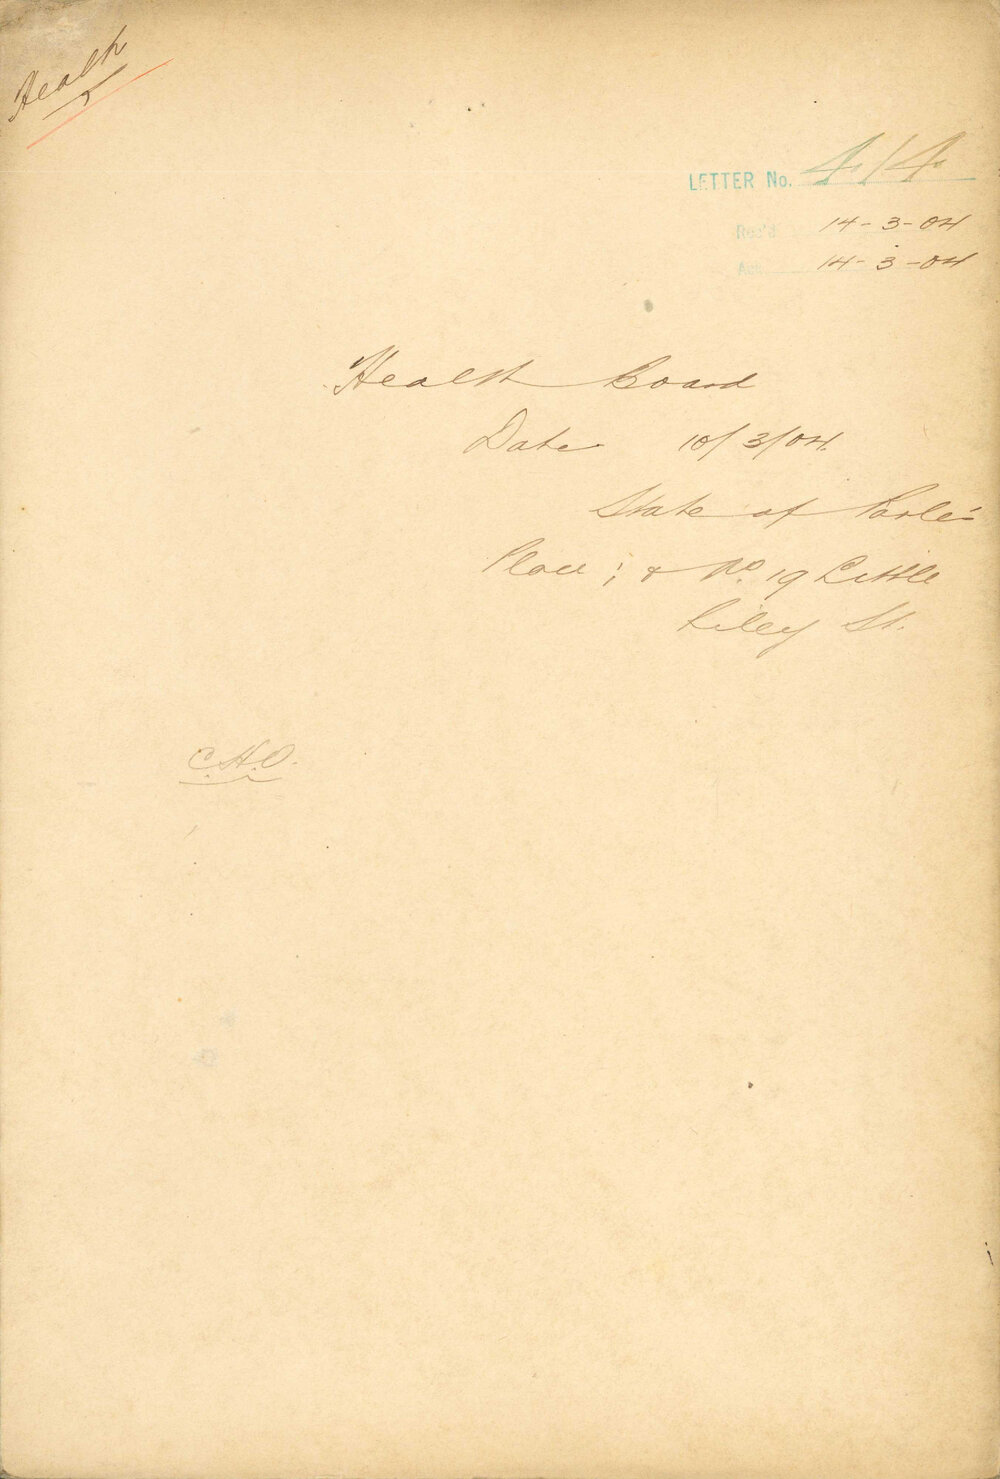 Health
LETTER No. 414
Rec'd 14-3-04
Ack 14-3-04
Health Board
Date 10/3/04.
State of
Place; & No. 19 Little
Riley St.
C.H.O.